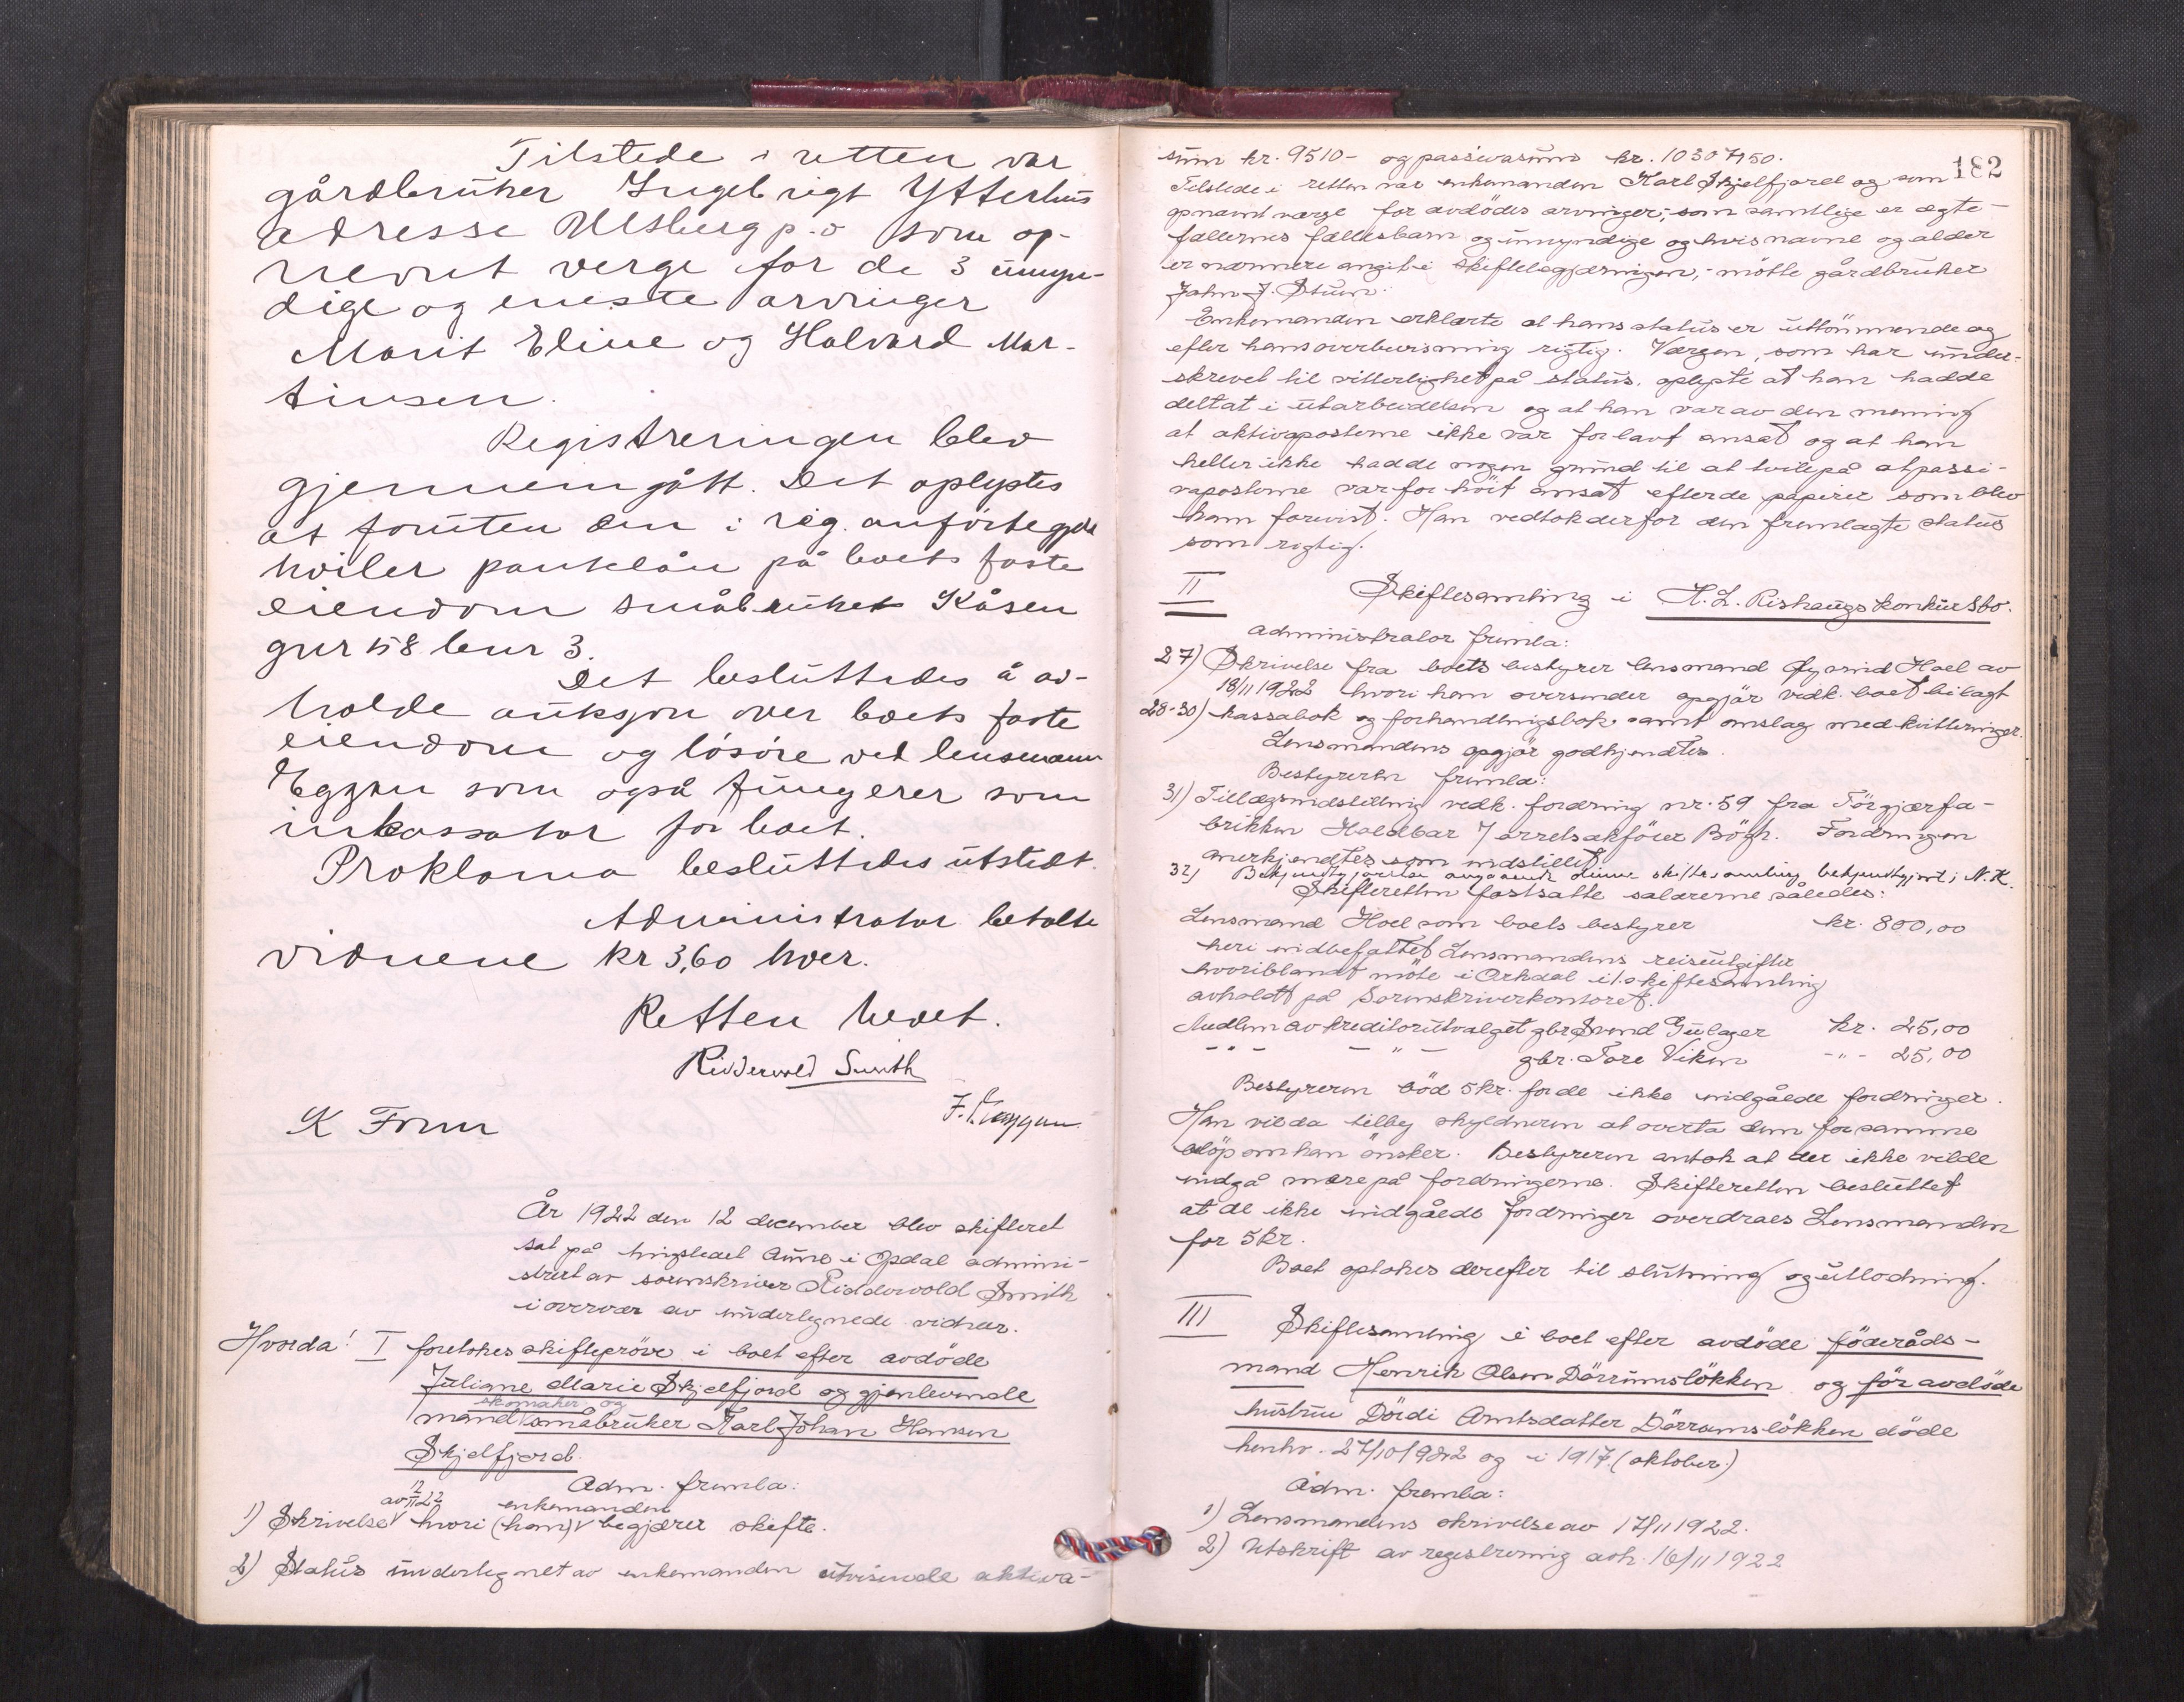 Tilstede i retten var
gårdbruker Ingebrigt Ytterhus
adresse Ulsberg p.o som op-
nevnt verge for de 3 umyn-
dige og eneste arvinger
Marit Eline og Halvard Mar-
tinsen.
Registreringen blev
gjennemgått. Det oplystes
at foruten den i reg. anførte gjeld
hviler pantelån på boets faste
eiendom småbruket Kåsen
gnr 158 bnr 3.
Det besluttedes å av-
holde auksjon over boets faste
eiendom og løsøre ved lensmann
Eggan som også fungerer som
inkassator for boet.
Proklama besluttedes utstedt.
Administrator betalte
vidnene kr 3,60 hver.
Retten hevet.
Ridderwold Smith
K Forun
År 1922 den 12 december blev skifteret
sat på tingstedet Aune i Opdal admini-
strert av sorenskriver Ridderwold Smith
i overvær av undertegnede vidner.
Hvorda! I foretokes skifteprøve i boet efter avdøde
Juliane Marie Skjelfjord og gjenlevende
skomaker og
mand småbruker Karl Johan Hansen
Skjelfjord.
Adm. fremla:
av 12/11 22 enkemanden
1) Skrivelse hvori (han) begjærer skifte.
2) Status undertegnet av enkemanden utvisende aktiva-
182
sum kr. 9510- og passivasum kr. 10307,50.
Tilstede i retten var enkemanden Karl Skjelfjord og som
opnævnt værge for avdødes arvinger, som samtlige er ægte-
fællernes fællesbarn og umyndige og hvis navne og alder
er nærmere angit i skiftebegjæringen, - møtte gårdbruker
John J. Stuen.
Enkemanden erklærte at hans status er uttømmende og
efter hans overbevisning rigtig. Værgen, som har under-
skrevet til vitterlighet på status, oplyste at han hadde
deltat i utarbeidelsen og at han var av den mening
at aktivaposterne ikke var for lavt ansat og at han
heller ikke hadde nogen grund til at tvile på at passi-
vaposterne var for høit ansat efter de papirer som blev
ham forevist. Han vedtok derfor den fremlagte status
som rigtig.
II Skiftesamling i H. L. Rishaugs konkursbo.
Administrator fremla:
27) Skrivelse fra boets bestyrer lensmand Øyvind Hoel av
18/11 1922 hvori han oversender opgjør vedk. boet bilagt
28-30) kassabok og forhandlingsbok samt omslag med kvitteringer.
Lensmandens opgjør godkjendtes.
Bestyreren fremla:
31) Tillægsindstilling vedk. fordring nr. 59 fra Tørgjærfa-
brikken Holdbar v/ overretsakfører Bögh. Fordringen
anerkjendtes som indstillet.
32) Bekjendtgjørelse angaaende denne skiftesamling bekjendtgjort i N. K.
Skifteretten fastsatte salærerne således:
Lensmand Hoel som boets bestyrer kr. 800,00
heri indbefattet Lensmandens reiseutgifter
hvoriblandt møte i Orkdal i 1. skiftesamling
avholdt på Sorenskriverkontoret.
Medlem av kreditorutvalget gbr Svend Gulager kr. 25,00
- " - - " - gbr. Tore Viken - " - 25,00
Bestyreren bød 5 kr. for de ikke indgåede fordringer.
Han vil da tilby skyldneren at overta dem for samme
beløp om han ønsker. Bestyreren antok at der ikke vilde
indgå mere på fordringerne. Skifteretten besluttet
at de ikke indgåede fordringer overdraes Lensmanden
for 5 kr.
Boet optokes derefter til slutning og utlodning.
III Skiftesamling i boet efter avdøde föderåds-
mand Henrik Olsen Dörrumslökken og før avdøde
hustru Dördi Arntsdatter Dörrumslökken døde
henhv. 27/10 1922 og i 1917. (oktober.)
Adm. fremla:
1) Lensmandens skrivelse av 17/11 1922.
2) Utskrift av registrering avh. 16/11 1922